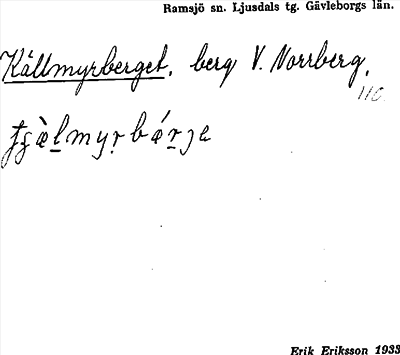 Ramsjö sn. Ljusdals tg. Gävleborgs län.
Källmyrberget, berg V. Norrberg.
110.
Erik Eriksson 1933